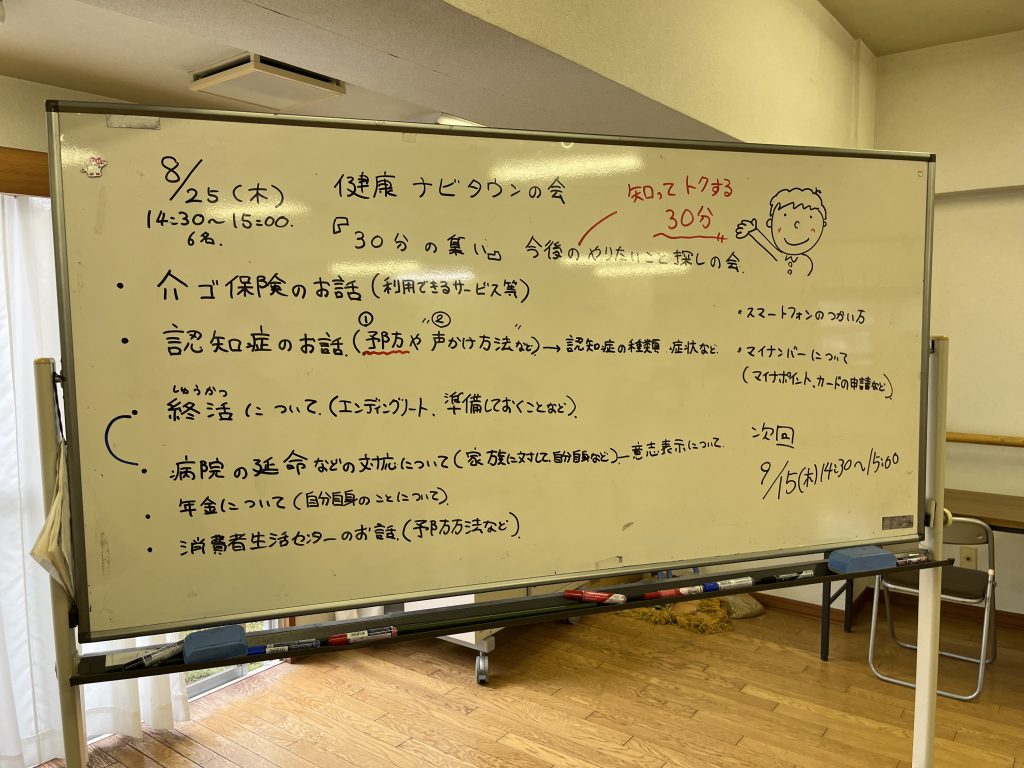 8/25(木)
14:30〜15:00.
6名.
健康 ナビタウンの会
知ってトクする
30分
『30分の集い』 今後の やりたいこと探しの会.
・介ゴ保険のお話(利用できるサービス等)
① "②
・認知症のお話.(予防や 声かけ方法"など)→認知症の種類、症状など.
しゅうかつ
・終活について.(エンディングノート、準備しておくことなど).
・病院の延命などの対応について(家族に対して、自分自身など)—意志表示について.
・年金について(自分自身のことについて).
・消費者生活センターのお話.(予防方法など).
・スマートフォンのつかい方
・マイナンバーについて
(マイナポイント、カードの申請など)
次回
9/15(木)14:30〜15:00